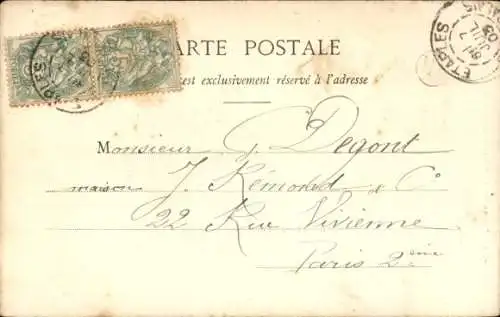 CARTE POSTALE
est exclusivement réservé à l'adresse
ETAPLES
Monsieur G. Degont
maison J. Rémond & Cie
22 Rue Vivienne
Paris 2ème